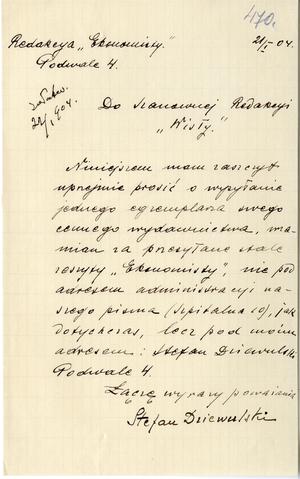 470.
Redakcya „Ekonomisty."
21/I - 04.
Podwale 4.
22/I 904.
Do Szanownej Redakcyi
„Wisły."
Niniejszem mam zaszczyt
uprzejmie prosić o wysyłanie
jednego egzemplarza swego
cennego wydawnictwa, wza-
mian za przesyłane stale
zeszyty „Ekonomisty", nie pod
adresem administracyi na-
szego pisma (Szpitalna 10), jak
dotychczas, lecz pod moim
adresem: Stefan Dziewulski
Podwale 4.
Łączę wyrazy poważania
Stefan Dziewulski